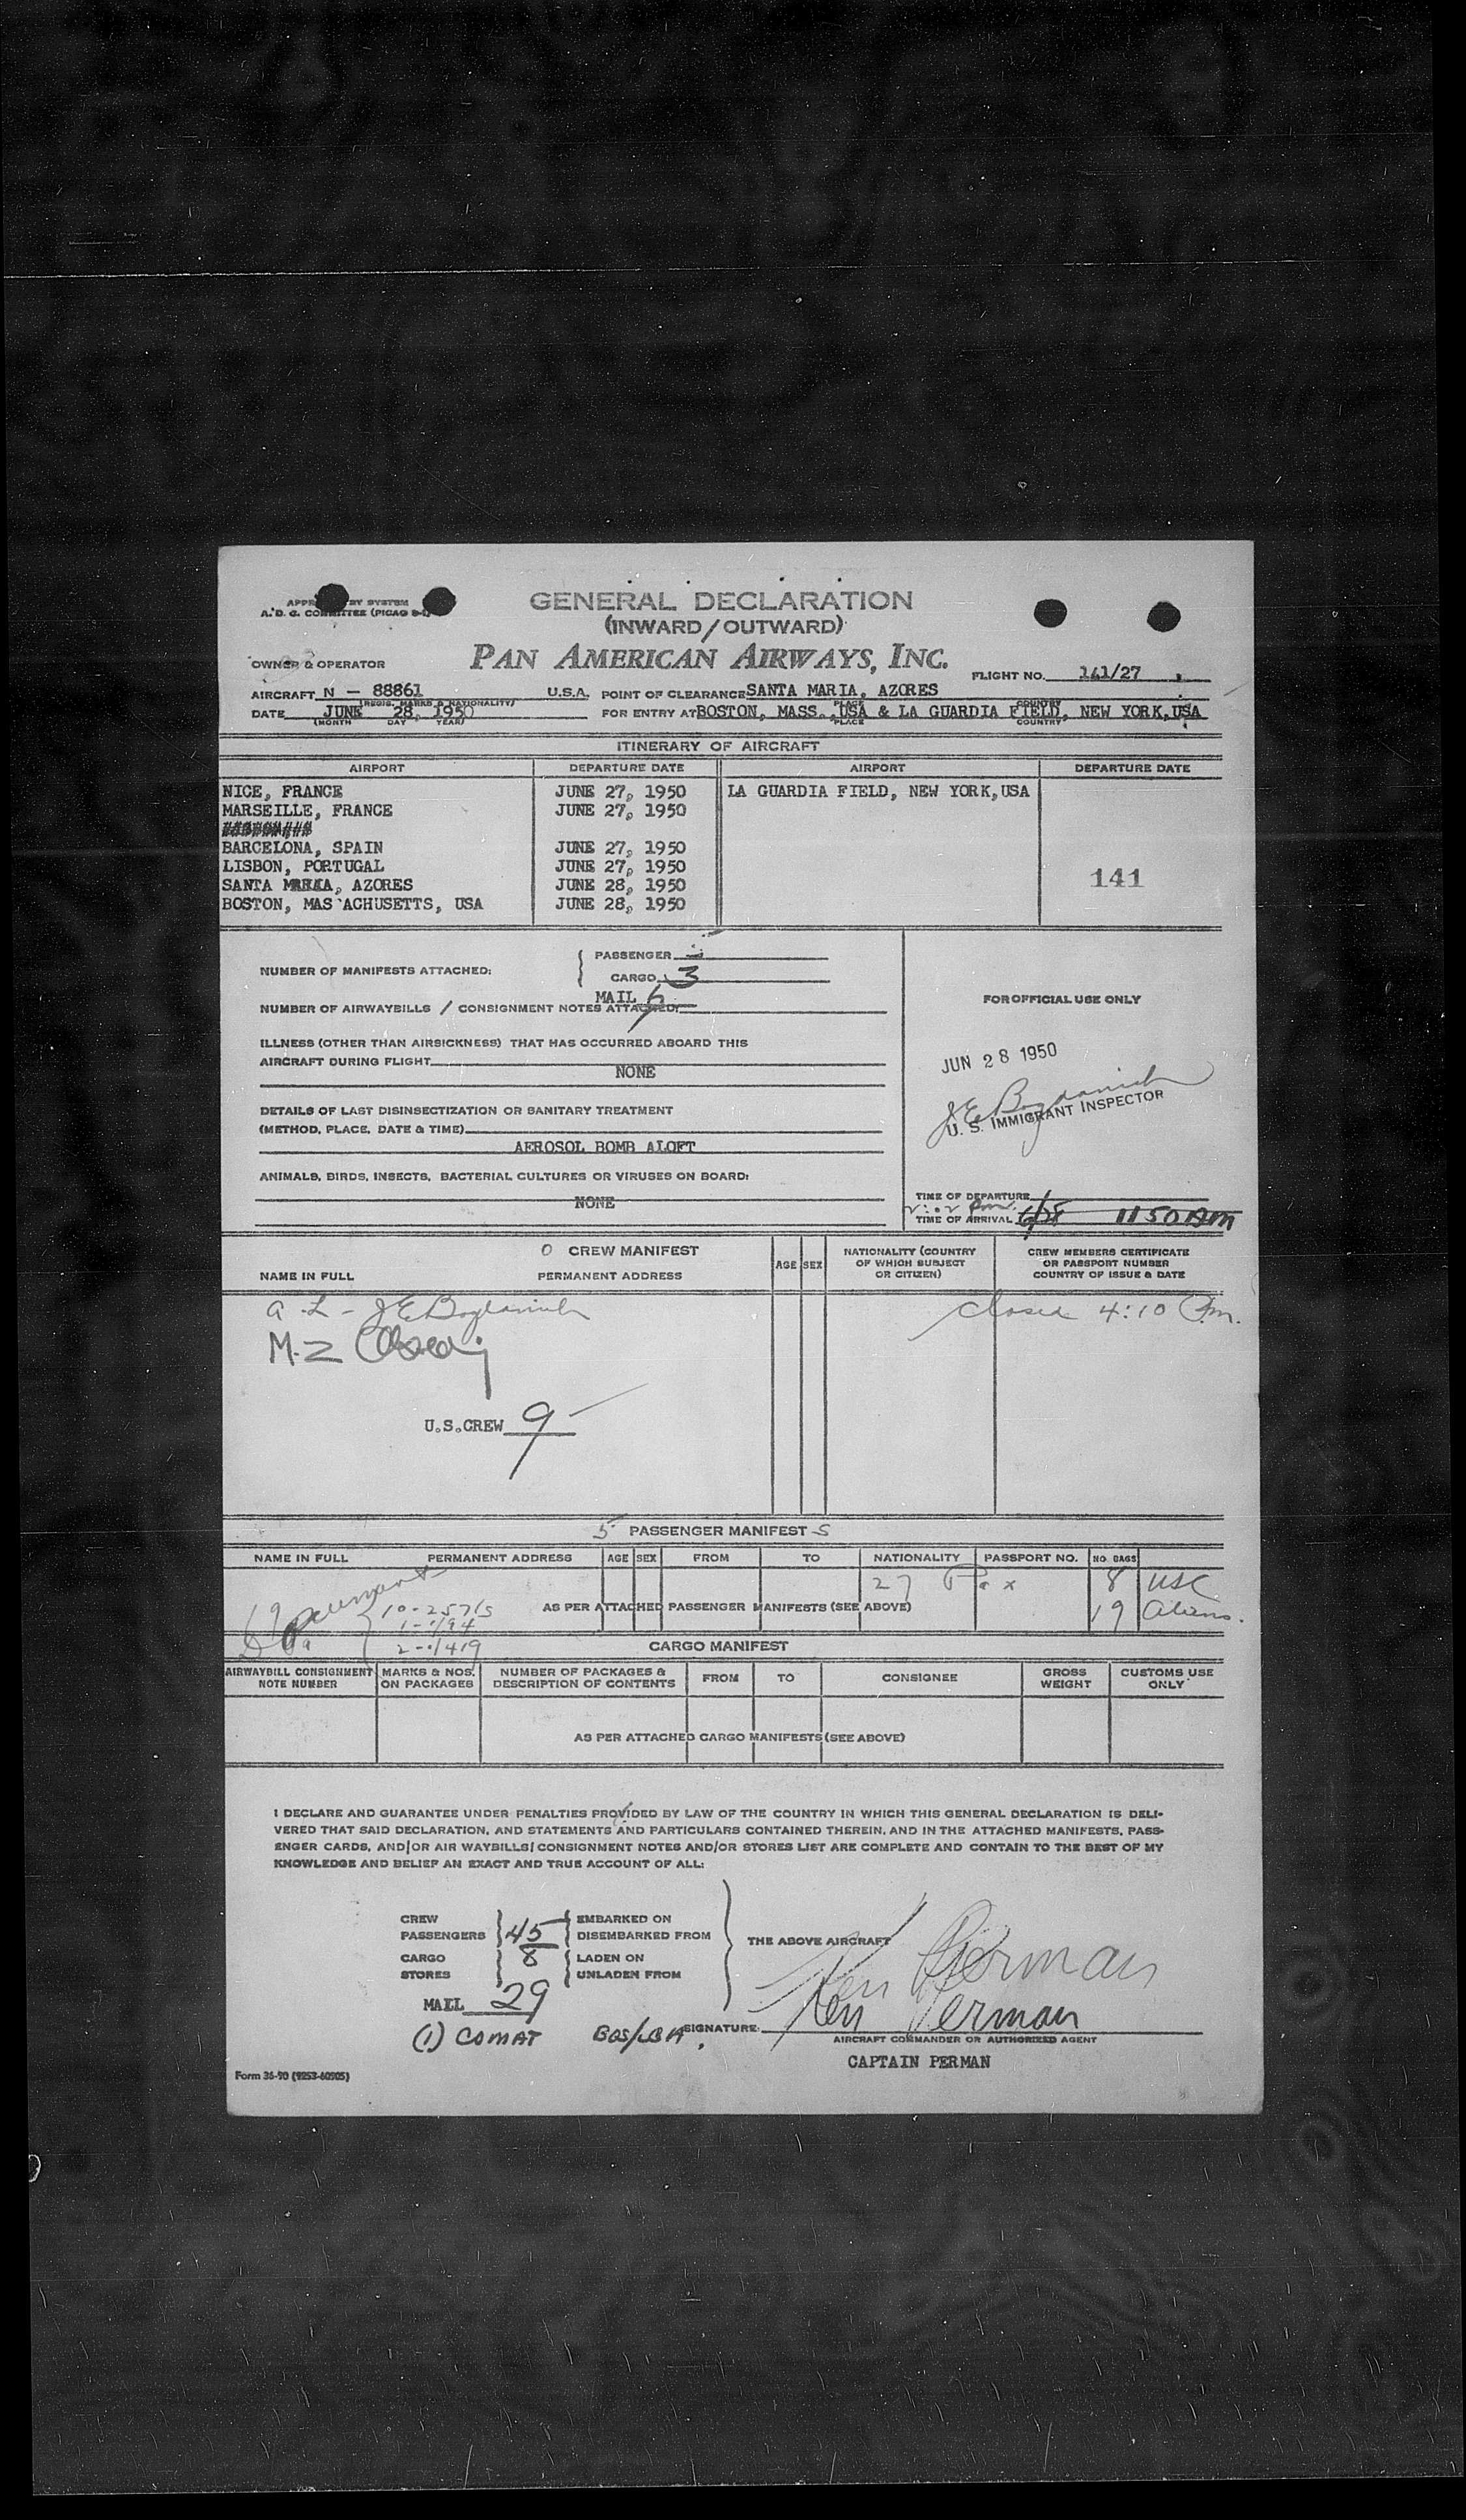 GENERAL DECLARATION
(INWARD/OUTWARD)
PAN AMERICAN AIRWAYS, INC.
A.D.G. COMMITTEE (PICAO
OWNER & OPERATOR
FLIGHT NO. 141/27
AIRCRAFT N - 88861 U.S.A. POINT OF CLEARANCE SANTA MARIA, AZORES
(REGIS. MARKS & NATIONALITY) PLACE COUNTRY
DATE JUNE 28, 1950 FOR ENTRY AT BOSTON, MASS., USA & LA GUARDIA FIELD, NEW YORK, USA
(MONTH DAY YEAR) PLACE COUNTRY
ITINERARY OF AIRCRAFT
AIRPORT DEPARTURE DATE AIRPORT DEPARTURE DATE
NICE, FRANCE JUNE 27, 1950 LA GUARDIA FIELD, NEW YORK, USA
MARSEILLE, FRANCE JUNE 27, 1950
BARCELONA, SPAIN JUNE 27, 1950
LISBON, PORTUGAL JUNE 27, 1950
SANTA MARIA, AZORES JUNE 28, 1950 141
BOSTON, MAS ACHUSETTS, USA JUNE 28, 1950
NUMBER OF MANIFESTS ATTACHED: PASSENGER
CARGO 3
MAIL
NUMBER OF AIRWAYBILLS / CONSIGNMENT NOTES ATTACHED:
FOR OFFICIAL USE ONLY
ILLNESS (OTHER THAN AIRSICKNESS) THAT HAS OCCURRED ABOARD THIS
AIRCRAFT DURING FLIGHT
NONE
JUN 28 1950
J E Bogdanich
U. S. IMMIGRANT INSPECTOR
DETAILS OF LAST DISINSECTIZATION OR SANITARY TREATMENT
(METHOD, PLACE, DATE & TIME)
AEROSOL BOMB ALOFT
ANIMALS, BIRDS, INSECTS, BACTERIAL CULTURES OR VIRUSES ON BOARD:
NONE
TIME OF DEPARTURE
TIME OF ARRIVAL 6/28 1150 AM
0 CREW MANIFEST
NAME IN FULL PERMANENT ADDRESS AGE SEX NATIONALITY (COUNTRY OF WHICH SUBJECT OR CITIZEN) CREW MEMBERS CERTIFICATE OR PASSPORT NUMBER COUNTRY OF ISSUE & DATE
a.L - J E Bogdanich closed 4:10 Pm.
M-Z
U.S.CREW 9
5 PASSENGER MANIFEST S
NAME IN FULL PERMANENT ADDRESS AGE SEX FROM TO NATIONALITY PASSPORT NO. NO. BAGS
27 Pax 8 USC
10-25715 AS PER ATTACHED PASSENGER MANIFESTS (SEE ABOVE) 19 Aliens.
CARGO MANIFEST
AIRWAYBILL CONSIGNMENT NOTE NUMBER MARKS & NOS. ON PACKAGES NUMBER OF PACKAGES & DESCRIPTION OF CONTENTS FROM TO CONSIGNEE GROSS WEIGHT CUSTOMS USE ONLY
AS PER ATTACHED CARGO MANIFESTS (SEE ABOVE)
I DECLARE AND GUARANTEE UNDER PENALTIES PROVIDED BY LAW OF THE COUNTRY IN WHICH THIS GENERAL DECLARATION IS DELI-
VERED THAT SAID DECLARATION, AND STATEMENTS AND PARTICULARS CONTAINED THEREIN, AND IN THE ATTACHED MANIFESTS, PASS-
ENGER CARDS, AND/OR AIR WAYBILLS/ CONSIGNMENT NOTES AND/OR STORES LIST ARE COMPLETE AND CONTAIN TO THE BEST OF MY
KNOWLEDGE AND BELIEF AN EXACT AND TRUE ACCOUNT OF ALL:
CREW EMBARKED ON
PASSENGERS 45 DISEMBARKED FROM THE ABOVE AIRCRAFT
CARGO 8 LADEN ON
STORES UNLADEN FROM
Ken Perman
MAIL 29
(1) COMAT BOS/LGA SIGNATURE Ken Perman
AIRCRAFT COMMANDER OR AUTHORIZED AGENT
CAPTAIN PERMAN
Form 36-90 (9253-60905)